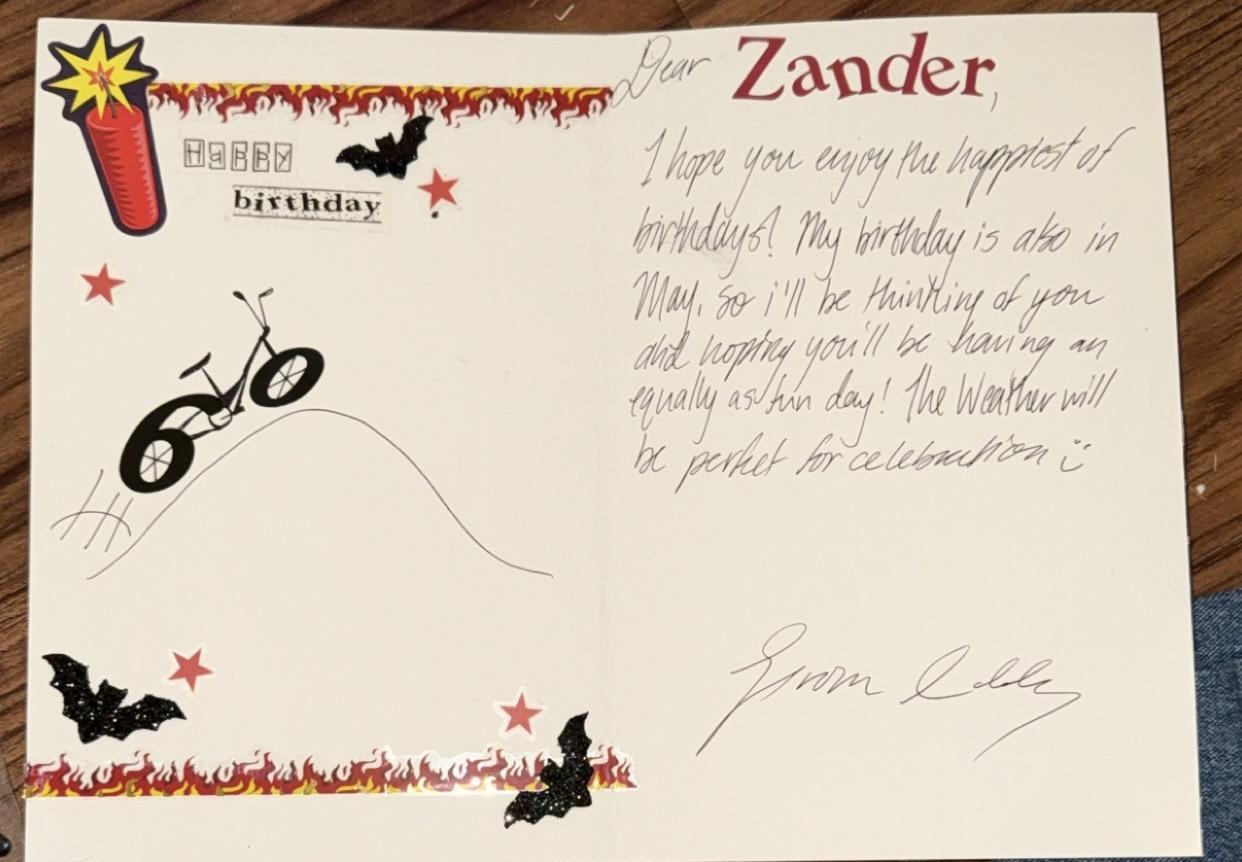 HaPPY
birthday
60
Dear Zander,
I hope you enjoy the happiest of
birthdays! My birthday is also in
May, so i'll be thinking of you
and hoping you'll be having an
equally as fun day! The Weather will
be perfect for celebration :)
From